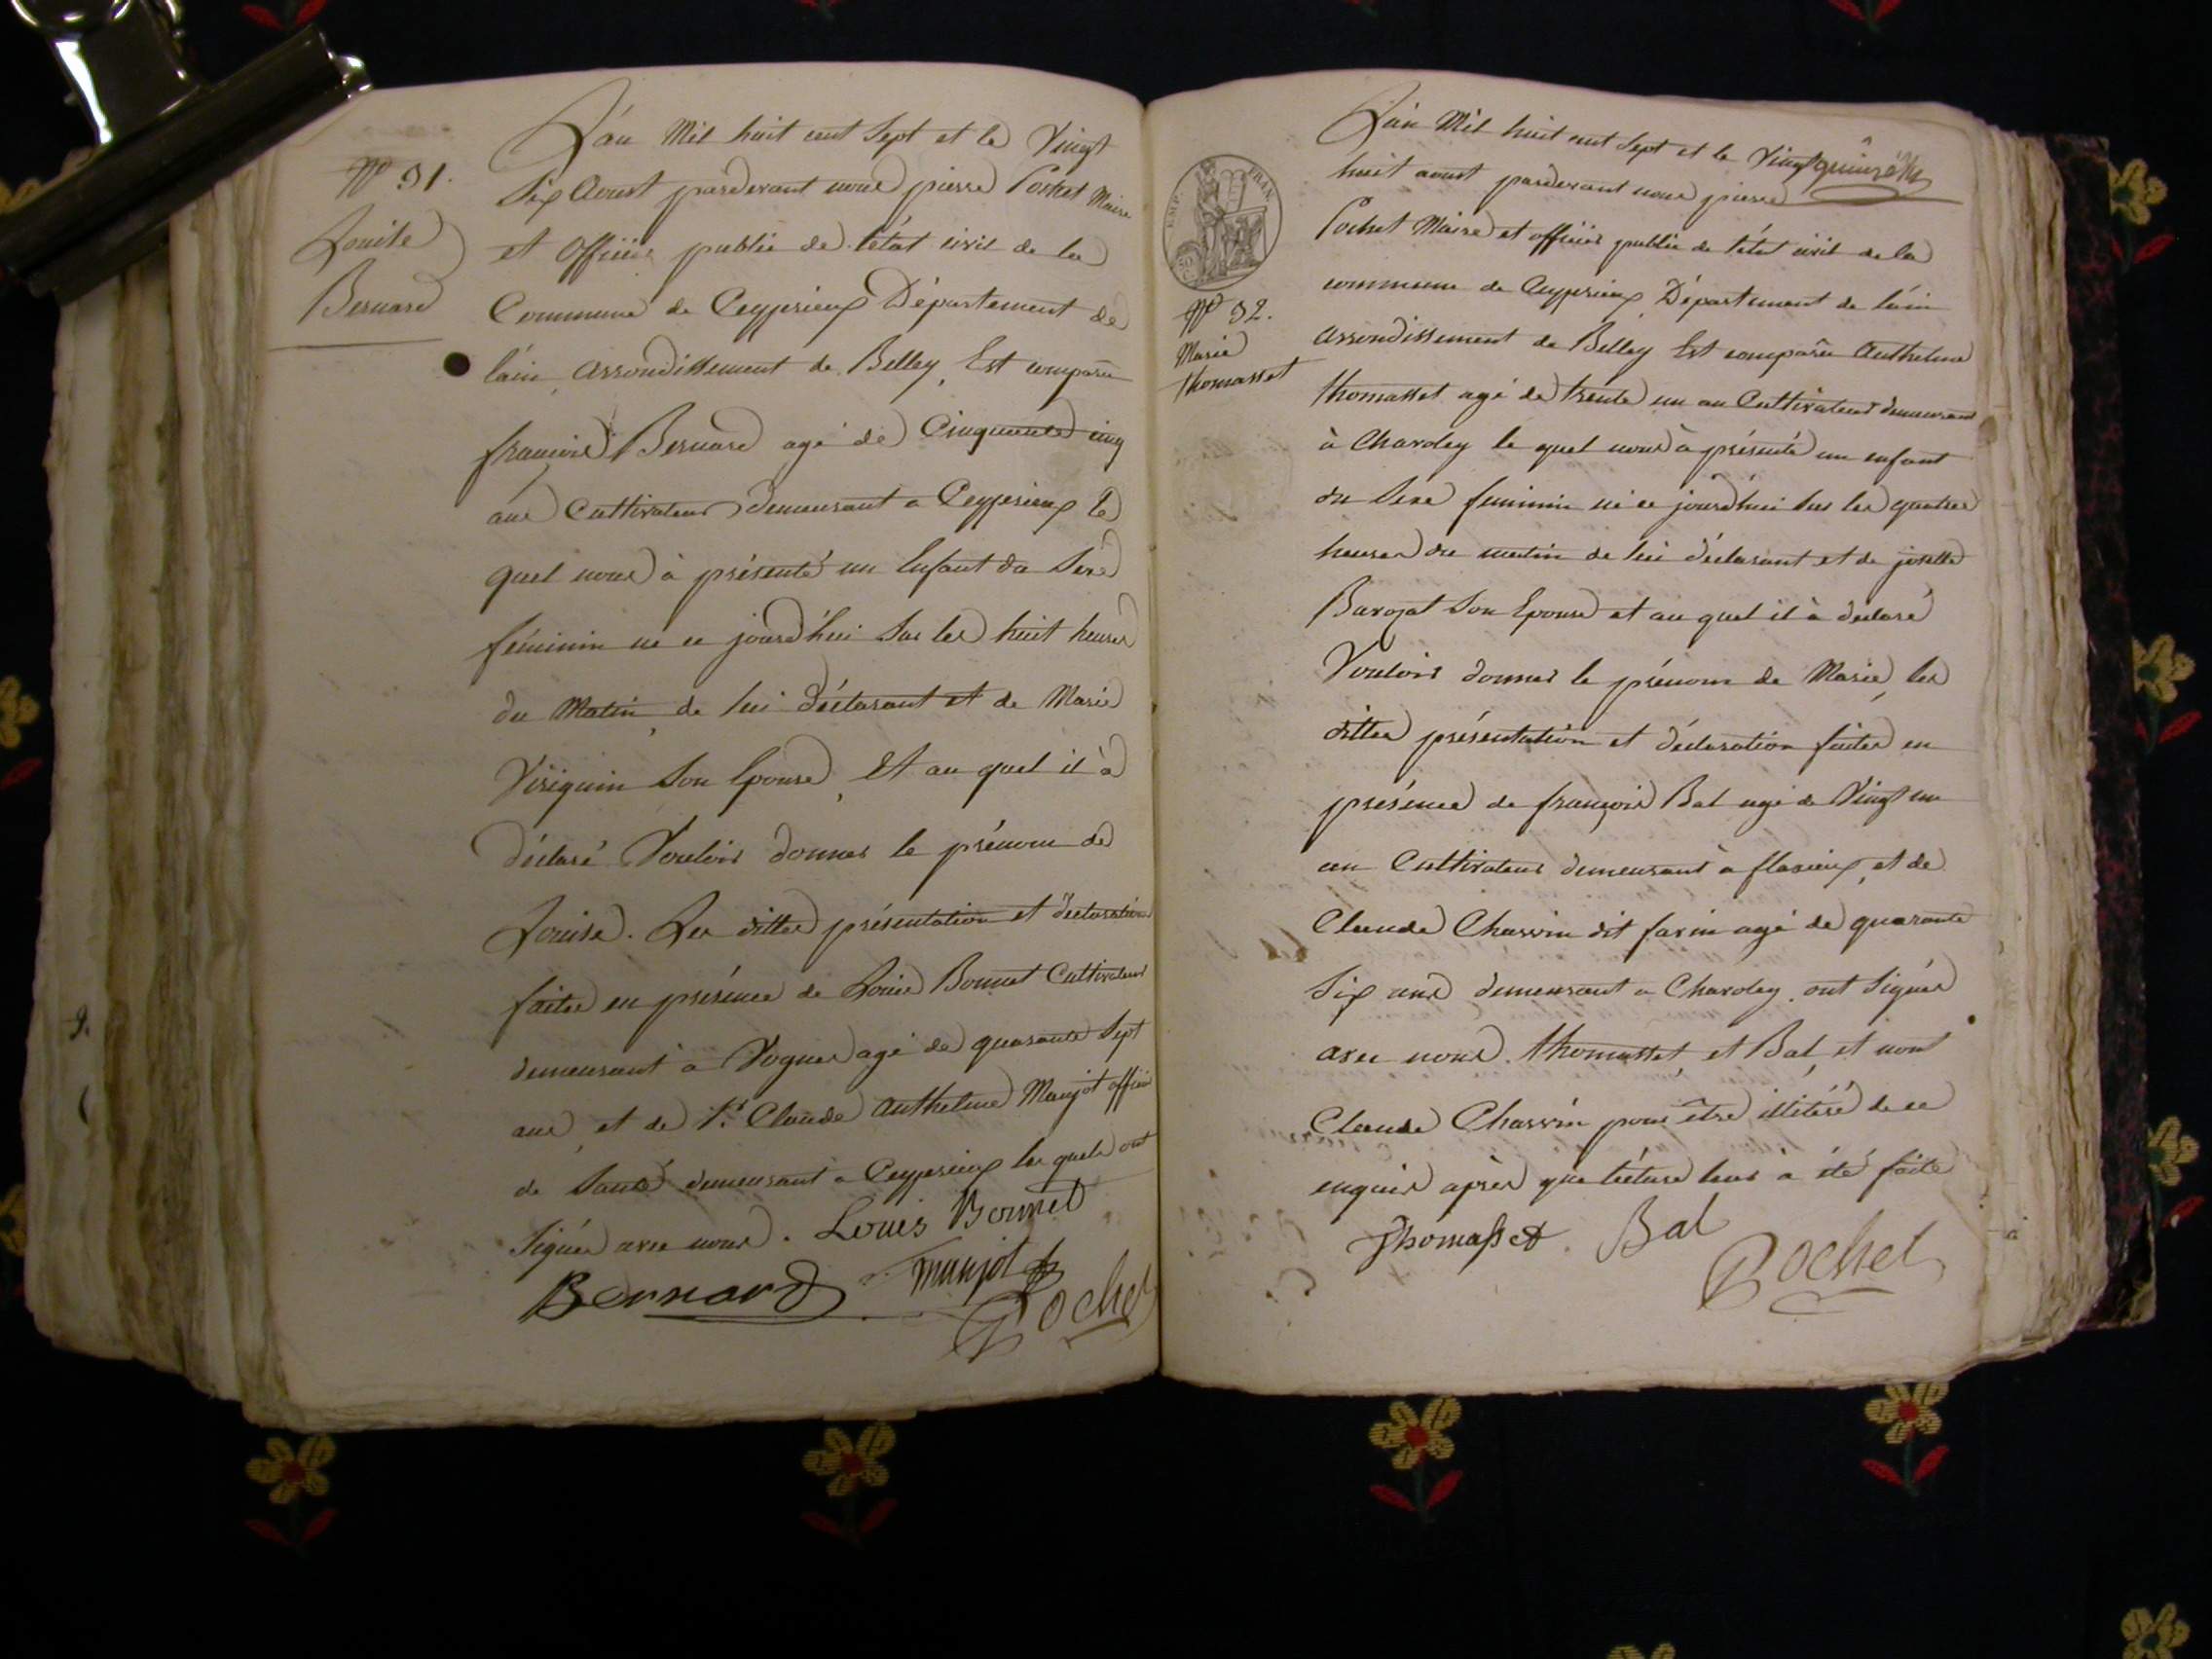 N° 31.
Louise
Bernard
L'án Mil huit cent Sept et le Vingt
Six Aoust pardevant nous pierre Pochet Maire
et Officier public de l'état civil de la
Commune de Ceyzerieux Département de
l'ain, Arrondissement de Belley, Est comparu
françois Bernard agé de Cinquante cinq
ans Cultivateur demeurant a Ceyzerieux le
quel nous à présenté un Enfant du Sexe
féminin né ce jourd'hui Sur les huit heures
du Matin, de lui déclarant et de Marie
Viriguin Son Epouse, Et au quel il à
déclaré Vouloir donner le prénom de
Louise. Les dittes présentation et déclaration
faites en présence de Louis Bonnet Cultivateur
demeurant à Vognes agé de quarante Sept
ans, et de Sr. Claude Anthelme Manjot officier
de Santé demeurant a Ceyzerieux les quels ont
Signés avec nous. Louis Bonnet
Bernard manjot
Pochet
EMP. FRAN.
N° 32.
Marie
thomasset
L'ain Mil huit cent Sept et le Vingt
huit aoust pardevant nous pierre
Pochet Maire et officier public de l'état civil de la
commune de Ceyzerieux Département de l'ain
arrondissement de Belley Est comparu Anthelme
thomasset agé de trente un an Cultivateur demeurant
à Charoley le quel nous à présenté un enfant
du Sexe feminin né ce jourd'hui Sur les quatres
heures du matin de lui déclarant et de josette
Barojat Son Epouse et au quel il à déclaré
Vouloir donner le prénom de Marie, les
dittes présentation et déclaration faites en
présence de françois Bal agé de Vingt un
an Cultivateur demeurant à flaxieux, et de
Claude Charvin dit farin agé de quarante
Six ans demeurant a Charoley, ont Signés
avec nous. thomasset, et Bal, et non
Claude Charvin pour être illiteré de ce
enquis après que lécture leur à été faite
Thomasset. Bal
Pochet